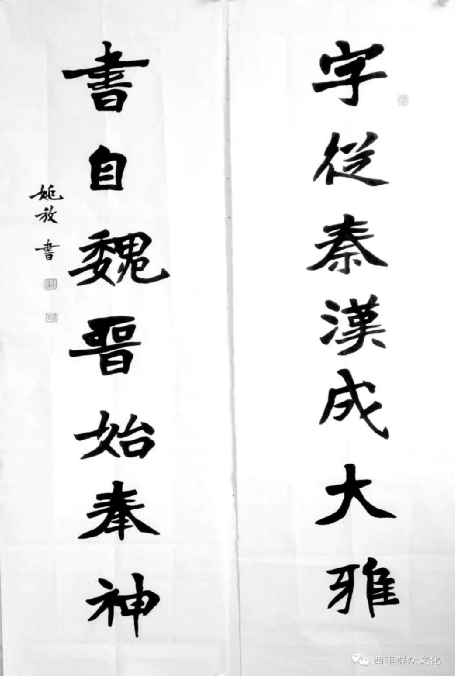 字從秦漢成大雅
書自魏晋始奉神
姫放書
西丰群众文化